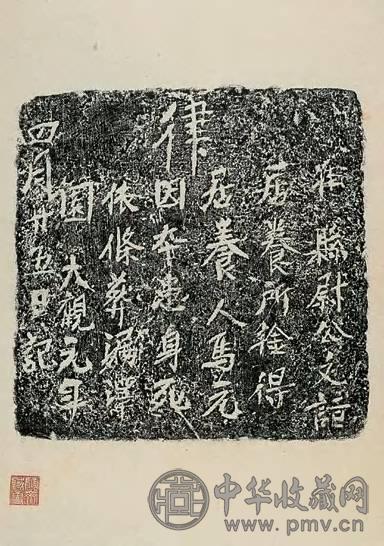 律
准縣尉公文詣
居養所捡得
居養人馬元
因本患身死
依條葬漏澤
園 大觀元年
四月廿五日記
中华收藏网
www.pmv.cn